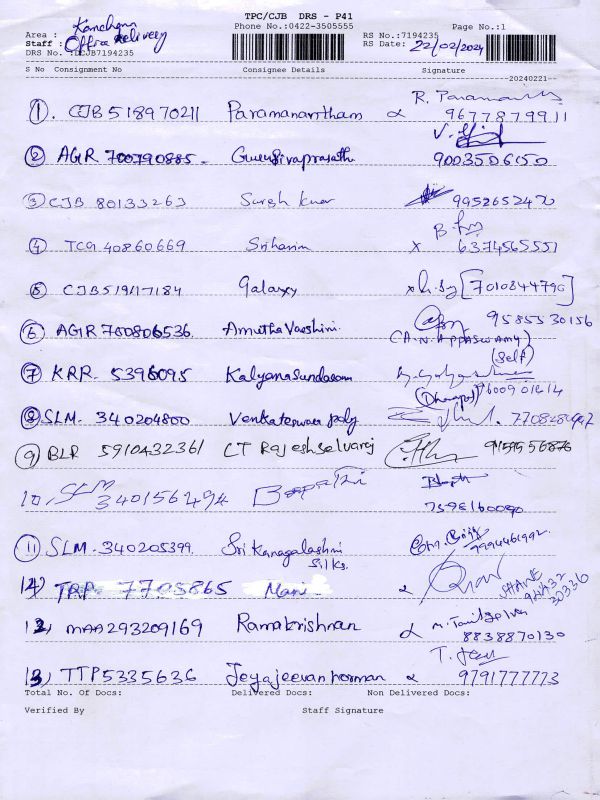 TPC/CJB DRS - P41
Phone No.:0422-3505555
Area : Kanchana
Staff : Office delivery
DRS No. :DCJB7194235
RS No.:7194235
RS Date: 22/02/2024
Page No.:1
S No Consignment No Consignee Details Signature
20240221
1. CJB 518970211 Paramanantham R. 9677879911
2 AGR 700790885 Gurusivaprasath 9003506150
3 CJB 80133263 Suresh Kumar 9952652470
4 TCG 40860669 Sriharini X B 6374565551
5 CJB 519417184 Galaxy x [7010844790]
6 AGR 780806536. Amutha Varshini. 9585530156
(A.N.APPASWAMY)
7 KRR. 5396095 Kalyanasundaram (Self)
(Dhanapal)
8 SLM. 340204800 Venkateswara poly
9 BLR 5910432361 CT Rajeshselvaraj
10, SLM 340156494 7598160090
11 SLM. 340205399. Sri Kanagalashmi Silks. 7994461992.
12) TRP 7705865 Mani
12) MAA293209169 Ramakrishnan 8838870130
13) TTP5335636 Jeyajeevan 9791777773
Total No. Of Docs: Delivered Docs: Non Delivered Docs:
Verified By Staff Signature